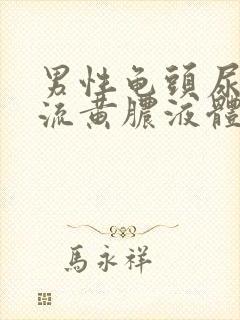 男性龟頭尿
流黄膿液體
馬永祥